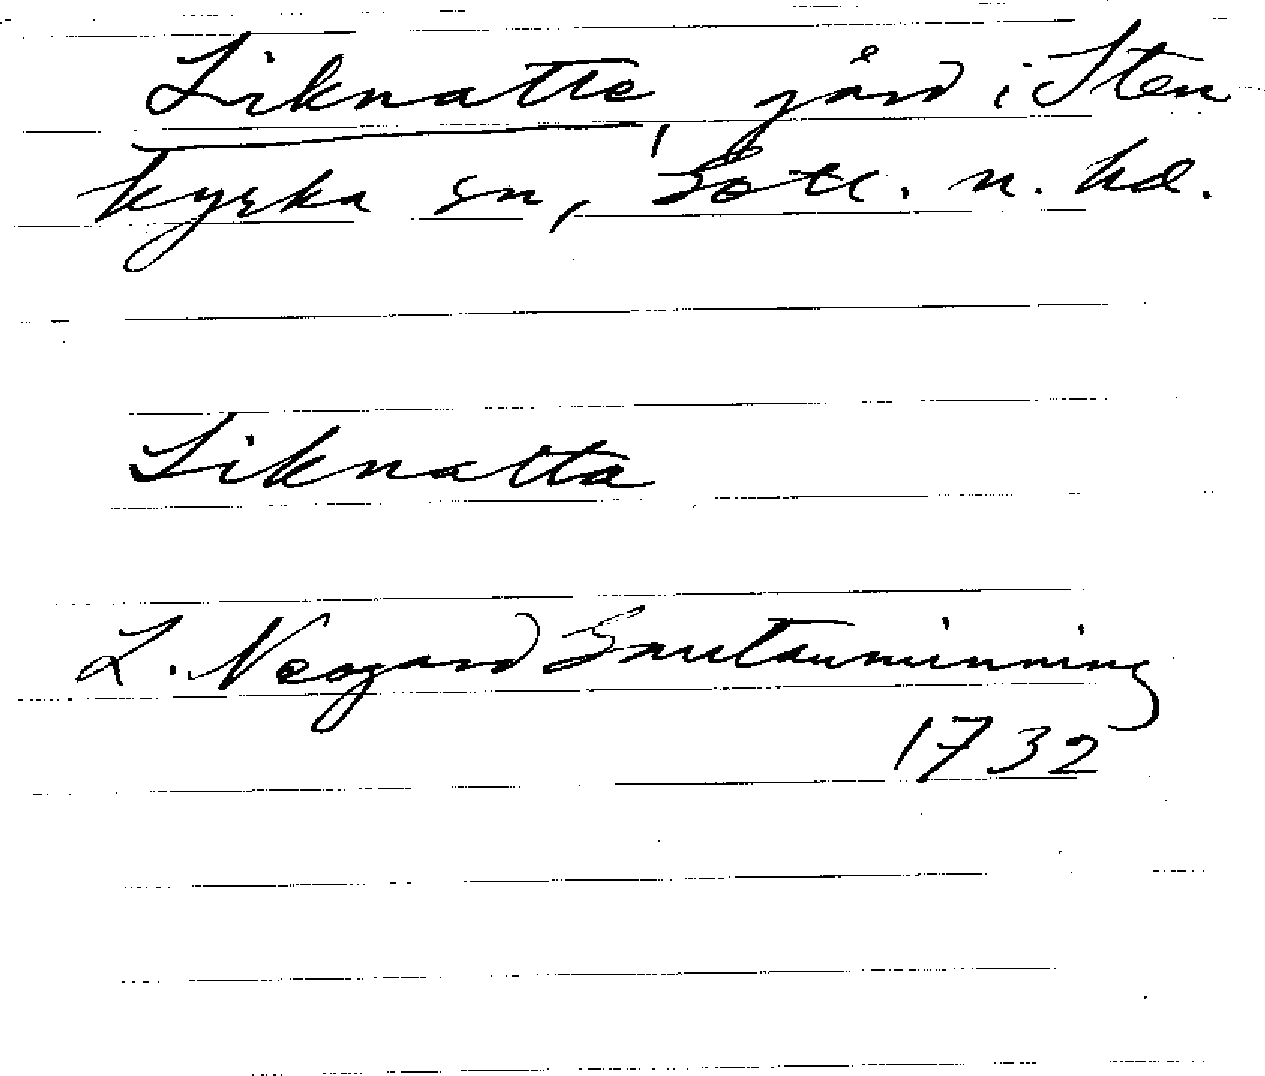 Liknatte, gård i Sten
kyrka sn, Gotl. n. hd.
Liknatta
L. Neogard Gautauminning
1732